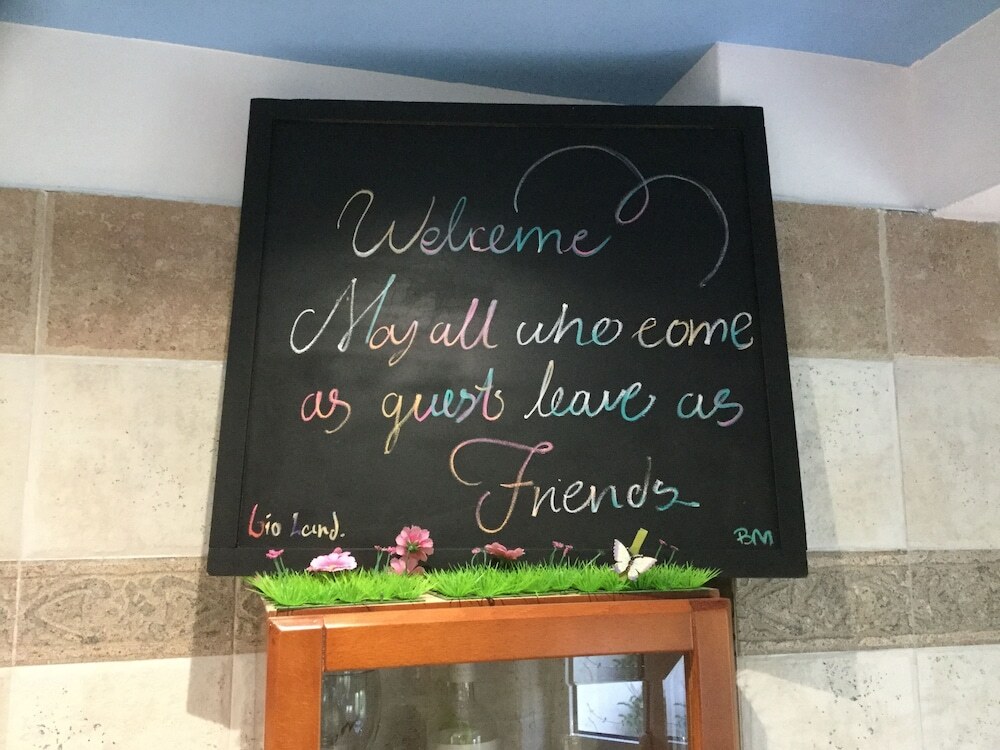 Welcome
May all who come
as guests leave as
Friends
bio Land.
BM